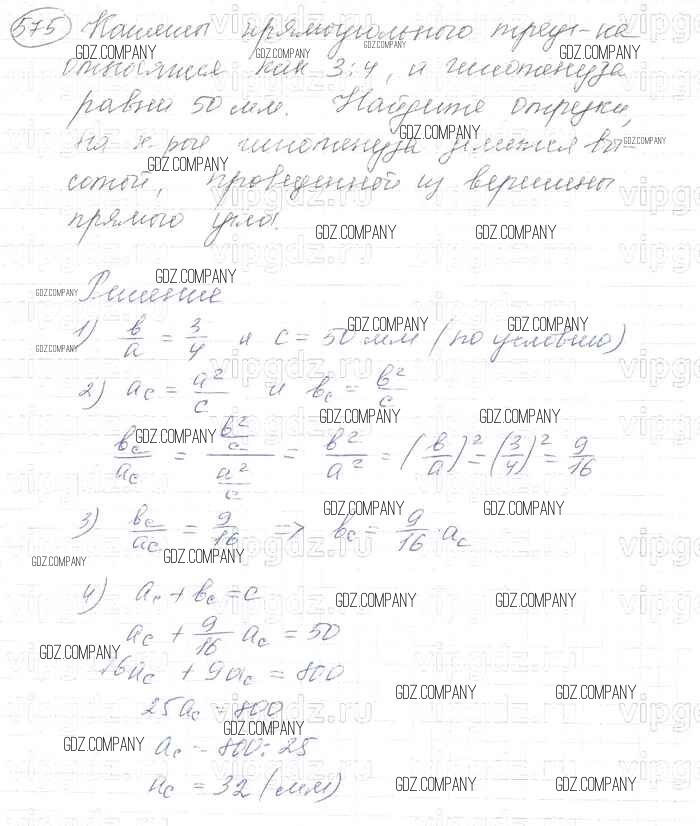 575 Катеты прямоугольного треуг-ка
относятся как 3:4, а гипотенуза
равна 50 мм. Найдите отрезки,
на к-рые гипотенуза делится вы-
сотой, проведенной из вершины
прямого угла.
Решение
1) в/а = 3/4 и с = 50 мм (по условию)
2) a_c = a²/c и в_c = в²/c
в_c/a_c = (в²/c)/(a²/c) = в²/a² = (в/a)² = (3/4)² = 9/16
3) в_c/a_c = 9/16 => в_c = 9/16 · a_c
4) a_c + в_c = c
a_c + 9/16 a_c = 50
16a_c + 9a_c = 800
25a_c = 800
a_c = 800 : 25
a_c = 32 (мм)
GDZ.COMPANY
vipgdz.ru